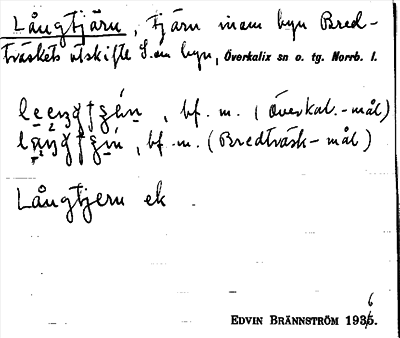 Långtjärn, tjärn inom byn Bred-
träskets utskifte S. om byn, Överkalix sn o. tg. Norrb. l.
, bf. m. (Överkal.-mål)
, bf. m. (Bredträsk-mål)
Långtjern ek.
EDVIN BRÄNNSTRÖM 1936.